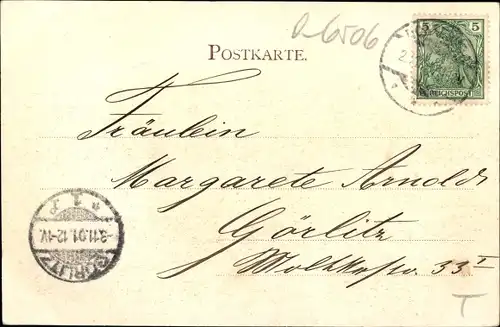 R 6506
POSTKARTE.
5 5
REICHSPOST
Fräulein
Margarete Arnold
Görlitz
Moltkestr. 33 I
GÖRLITZ
3.11.01. 12-1V.
* 1 d
T